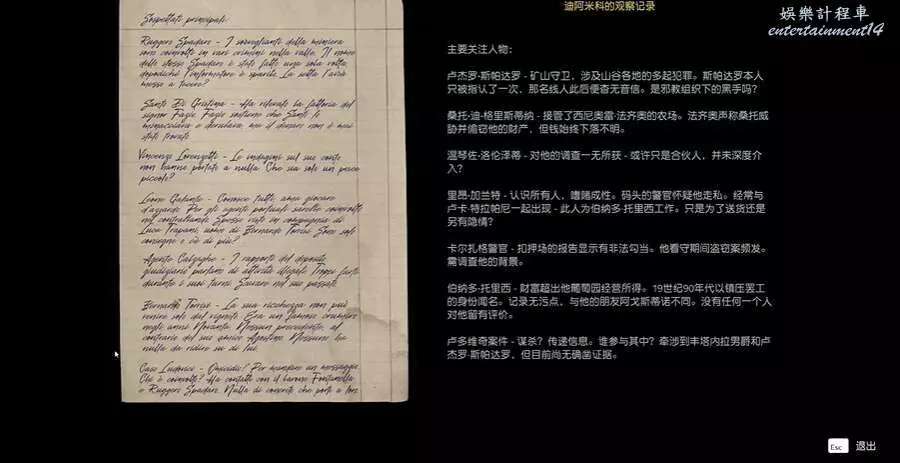 Sospettati principali:
Ruggero Spadaro - I sorveglianti della miniera
sono coinvolti in vari crimini nella valle. Il nome
dello stesso Spadaro è stato fatto una sola volta,
dopodiché l'informatore è sparito. La setta l'avrà
messo a tacere?
Santo Di Gristina - Ha rilevato la fattoria del
signor Fazio. Fazio sostiene che Santo lo
minacciava e derubava, ma il denaro non è mai
stato trovato.
Vincenzo Lorenzetti - Le indagini sul suo conto
non hanno portato a nulla. Che sia solo un pesce
piccolo?
Leone Galante - Conosce tutti, ama giocare
d'azzardo. Per gli agenti portuali sarebbe coinvolto
nel contrabbando. Spesso visto in compagnia di
Luca Trapani, uomo di Bernardo Torrisi. Sono solo
consegne o c'è di più?
Agente Calzaghe - I rapporti del deposito
giudiziario parlano di attività illegale. Troppi furti
durante i suoi turni. Scavare nel suo passato.
Bernardo Torrisi - La sua ricchezza non può
venire solo dal vigneto. Era un famoso crumiro
negli anni Novanta. Nessun precedente, al
contrario del suo amico Agostino. Nessuno ha
nulla da ridire su di lui.
Caso Ludovico - Omicidio? Per mandare un messaggio.
Chi è coinvolto? Ha contatti con il barone Fontanella
e Ruggero Spadaro. Nulla di concreto che porti a loro
迪阿米科的观察记录
娛樂計程車
entertainment14
主要关注人物：
卢杰罗·斯帕达罗 - 矿山守卫，涉及山谷各地的多起犯罪。斯帕达罗本人
只被指认了一次，那名线人此后便杳无音信。是邪教组织下的黑手吗？
桑托·迪·格里斯蒂纳 - 接管了西尼奥雷·法齐奥的农场。法齐奥声称桑托威
胁并偷窃他的财产，但钱始终下落不明。
温琴佐·洛伦泽蒂 - 对他的调查一无所获 - 或许只是合伙人，并未深度介
入？
里昂·加兰特 - 认识所有人，嗜赌成性。码头的警官怀疑他走私。经常与
卢卡·特拉帕尼一起出现 - 此人为伯纳多·托里西工作。只是为了送货还是
另有隐情？
卡尔扎格警官 - 扣押场的报告显示有非法勾当。他看守期间盗窃案频发。
需调查他的背景。
伯纳多·托里西 - 财富超出他葡萄园经营所得。19世纪90年代以镇压罢工
的身份闻名。记录无污点，与他的朋友阿戈斯蒂诺不同。没有任何一个人
对他留有评价。
卢多维奇案件 - 谋杀？传递信息。谁参与其中？牵涉到丰塔内拉男爵和卢
杰罗·斯帕达罗，但目前尚无确凿证据。
Esc 退出